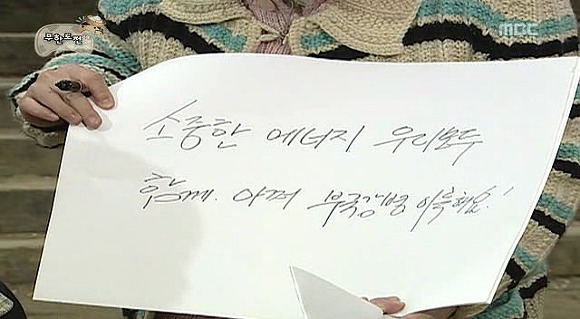 무한도전
MBC
소중한 에너지 우리모두
함께. 아껴 부국강병 이룩해요!